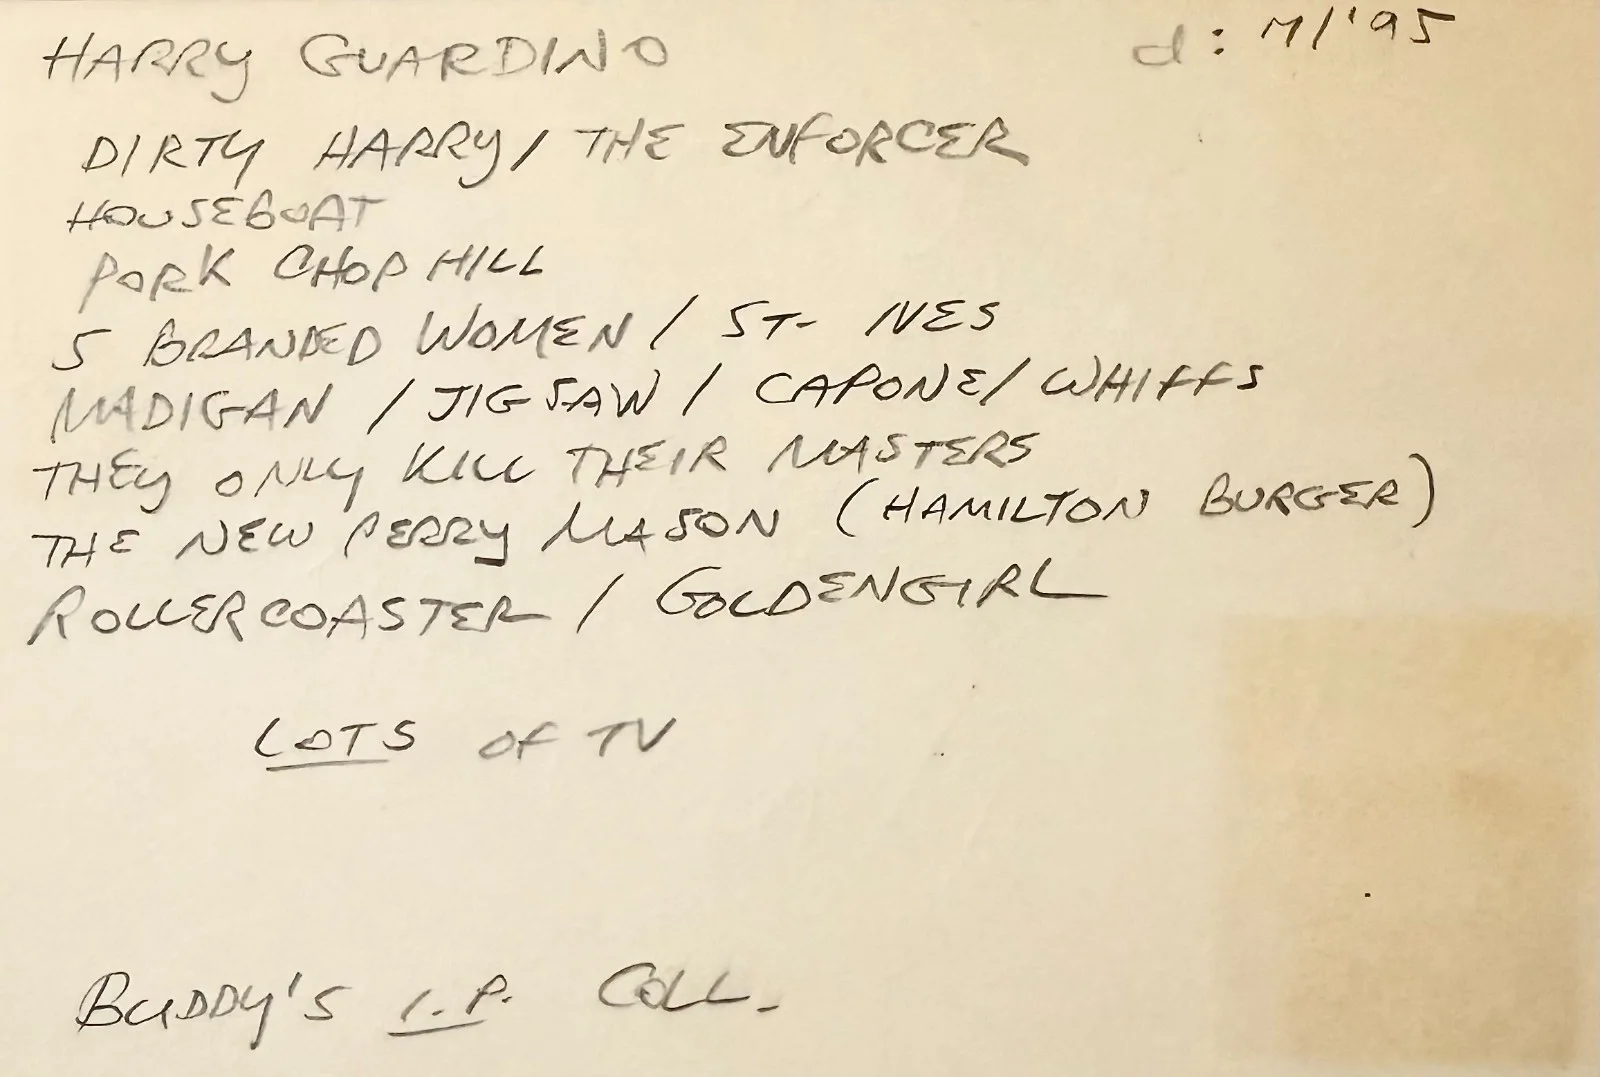 HARRY GUARDINO d: 7/'95
DIRTY HARRY / THE ENFORCER
HOUSEBOAT
PORK CHOP HILL
5 BRANDED WOMEN / ST- IVES
MADIGAN / JIGSAW / CAPONE / WHIFFS
THEY ONLY KILL THEIR MASTERS
THE NEW PERRY MASON (HAMILTON BURGER)
ROLLERCOASTER / GOLDENGIRL
LOTS OF TV
BUDDY'S I.P. COLL.